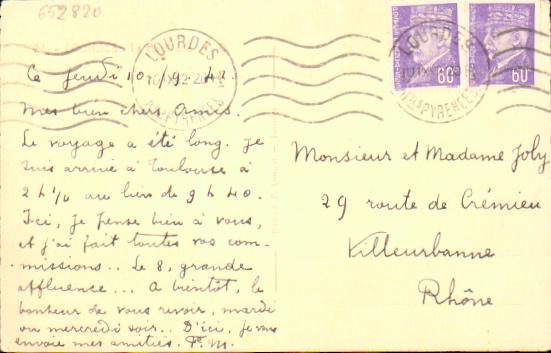 652820
LOURDES
10 IX 42
Htes PYRENEES
LOURDES
Htes PYRENEES
60c
60c
Ce jeudi 10/9.42
Mes bien chers Amis.
Le voyage a été long. Je
suis arrivé à Toulouse à
2 h ½ au lieu de 9 h 40.
Ici, je pense bien à vous,
et j'ai fait toutes vos com-
missions.. Le 8, grande
affluence... A bientôt, le
bonheur de vous revoir, mardi
ou mercredi soir.. D'ici, je vous
envoie mes amitiés. P.M.
Monsieur et Madame Joly
29 route de Crémieu
Villeurbanne
Rhône